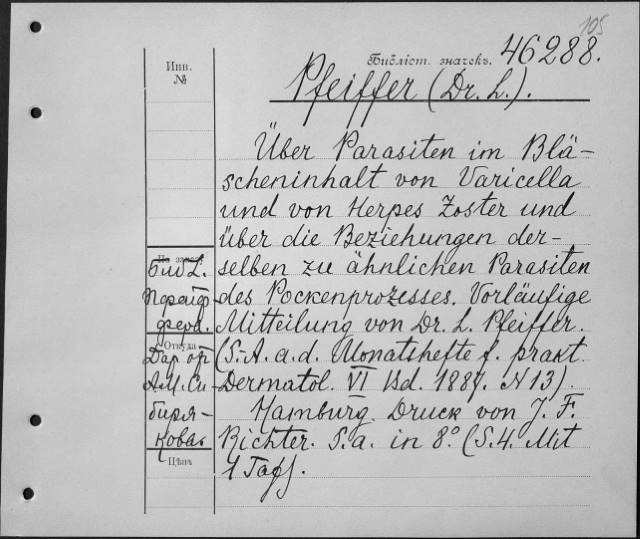 105
Библіот. значекъ. 46288.
Инв.
№
Pfeiffer (Dr. L.).
Über Parasiten im Blä-
scheninhalt von Varicella
und von Herpes Zoster und
über die Beziehungen der-
selben zu ähnlichen Parasiten
des Pockenprozesses. Vorläufige
Mitteilung von Dr. L. Pfeiffer.
(S.-A. a. d. Monatshefte f. prakt.
Dermatol. VI Bd. 1887. N 13).
Hamburg. Druck von J. F.
Richter. S. a. in 8.° (S. 4. Mit
1 Taf).
Библ.
Пфейф
фера.
Откуда
Дар от
А. М. Си-
биря-
кова.
Цѣна